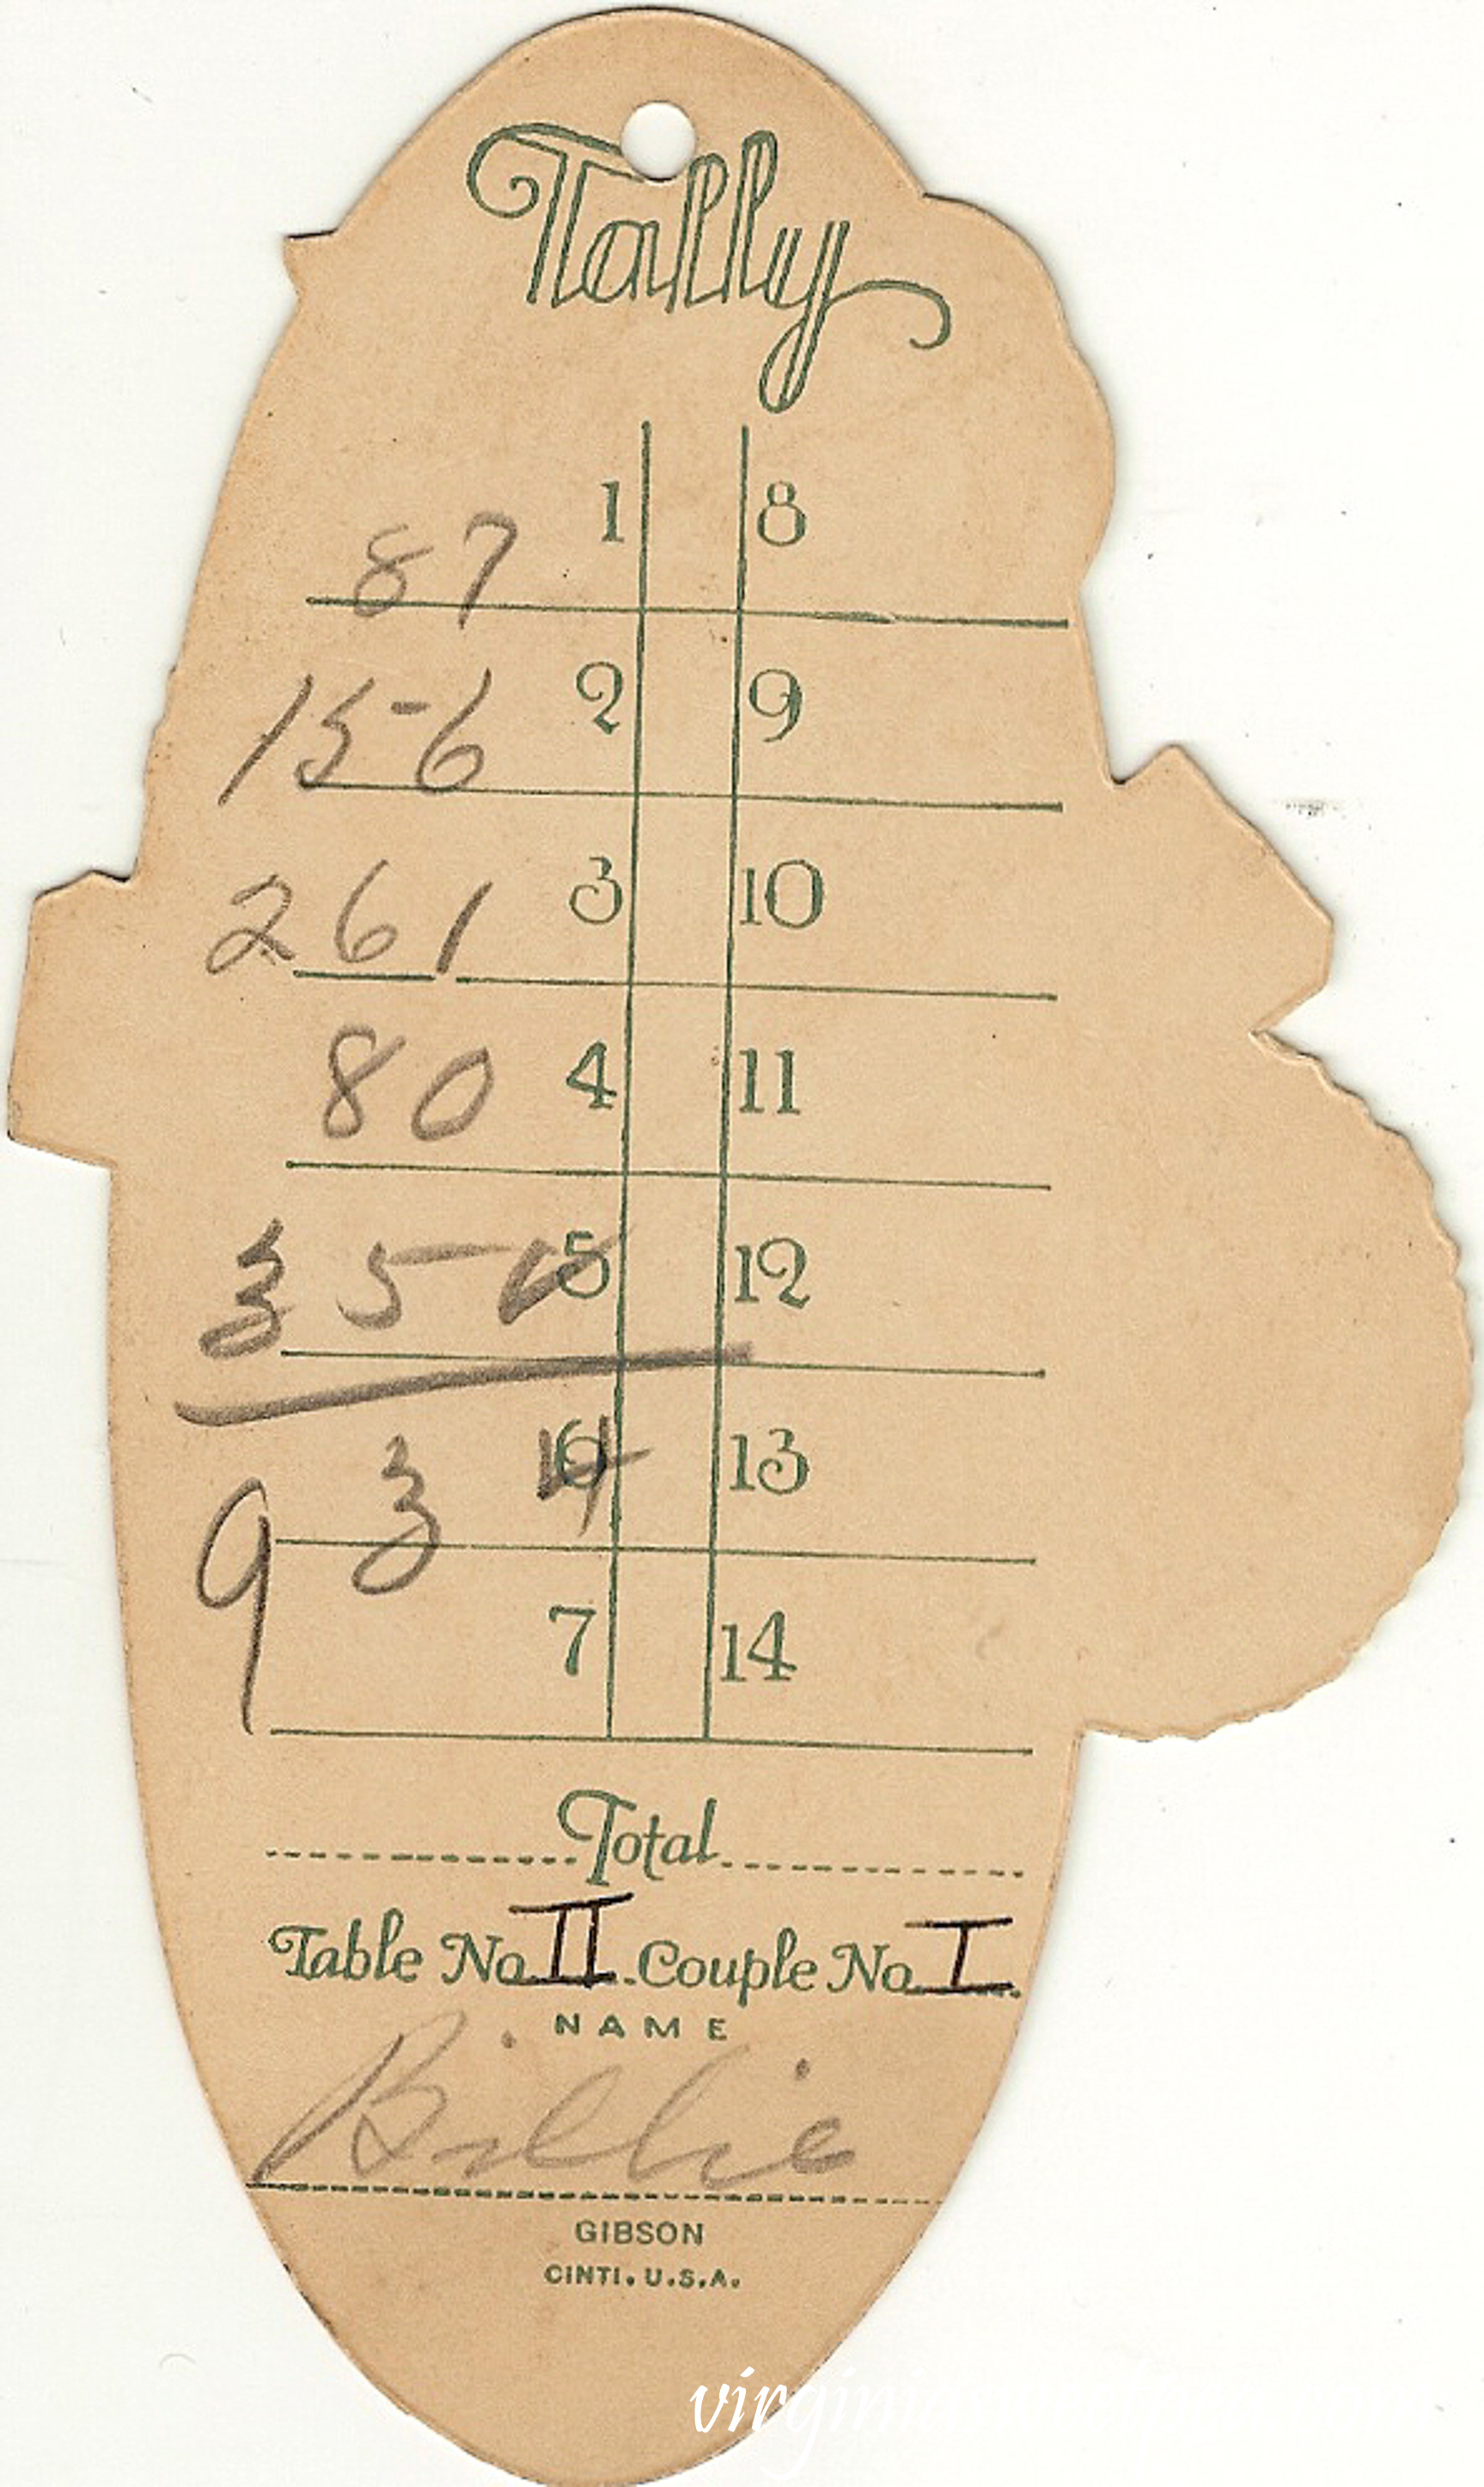 Tally
87 1 8
156 2 9
261 3 10
80 4 11
350 5 12
934 6 13
7 14
Total
Table No. II. Couple No. I.
NAME
Billie
GIBSON
CINTI. U.S.A.